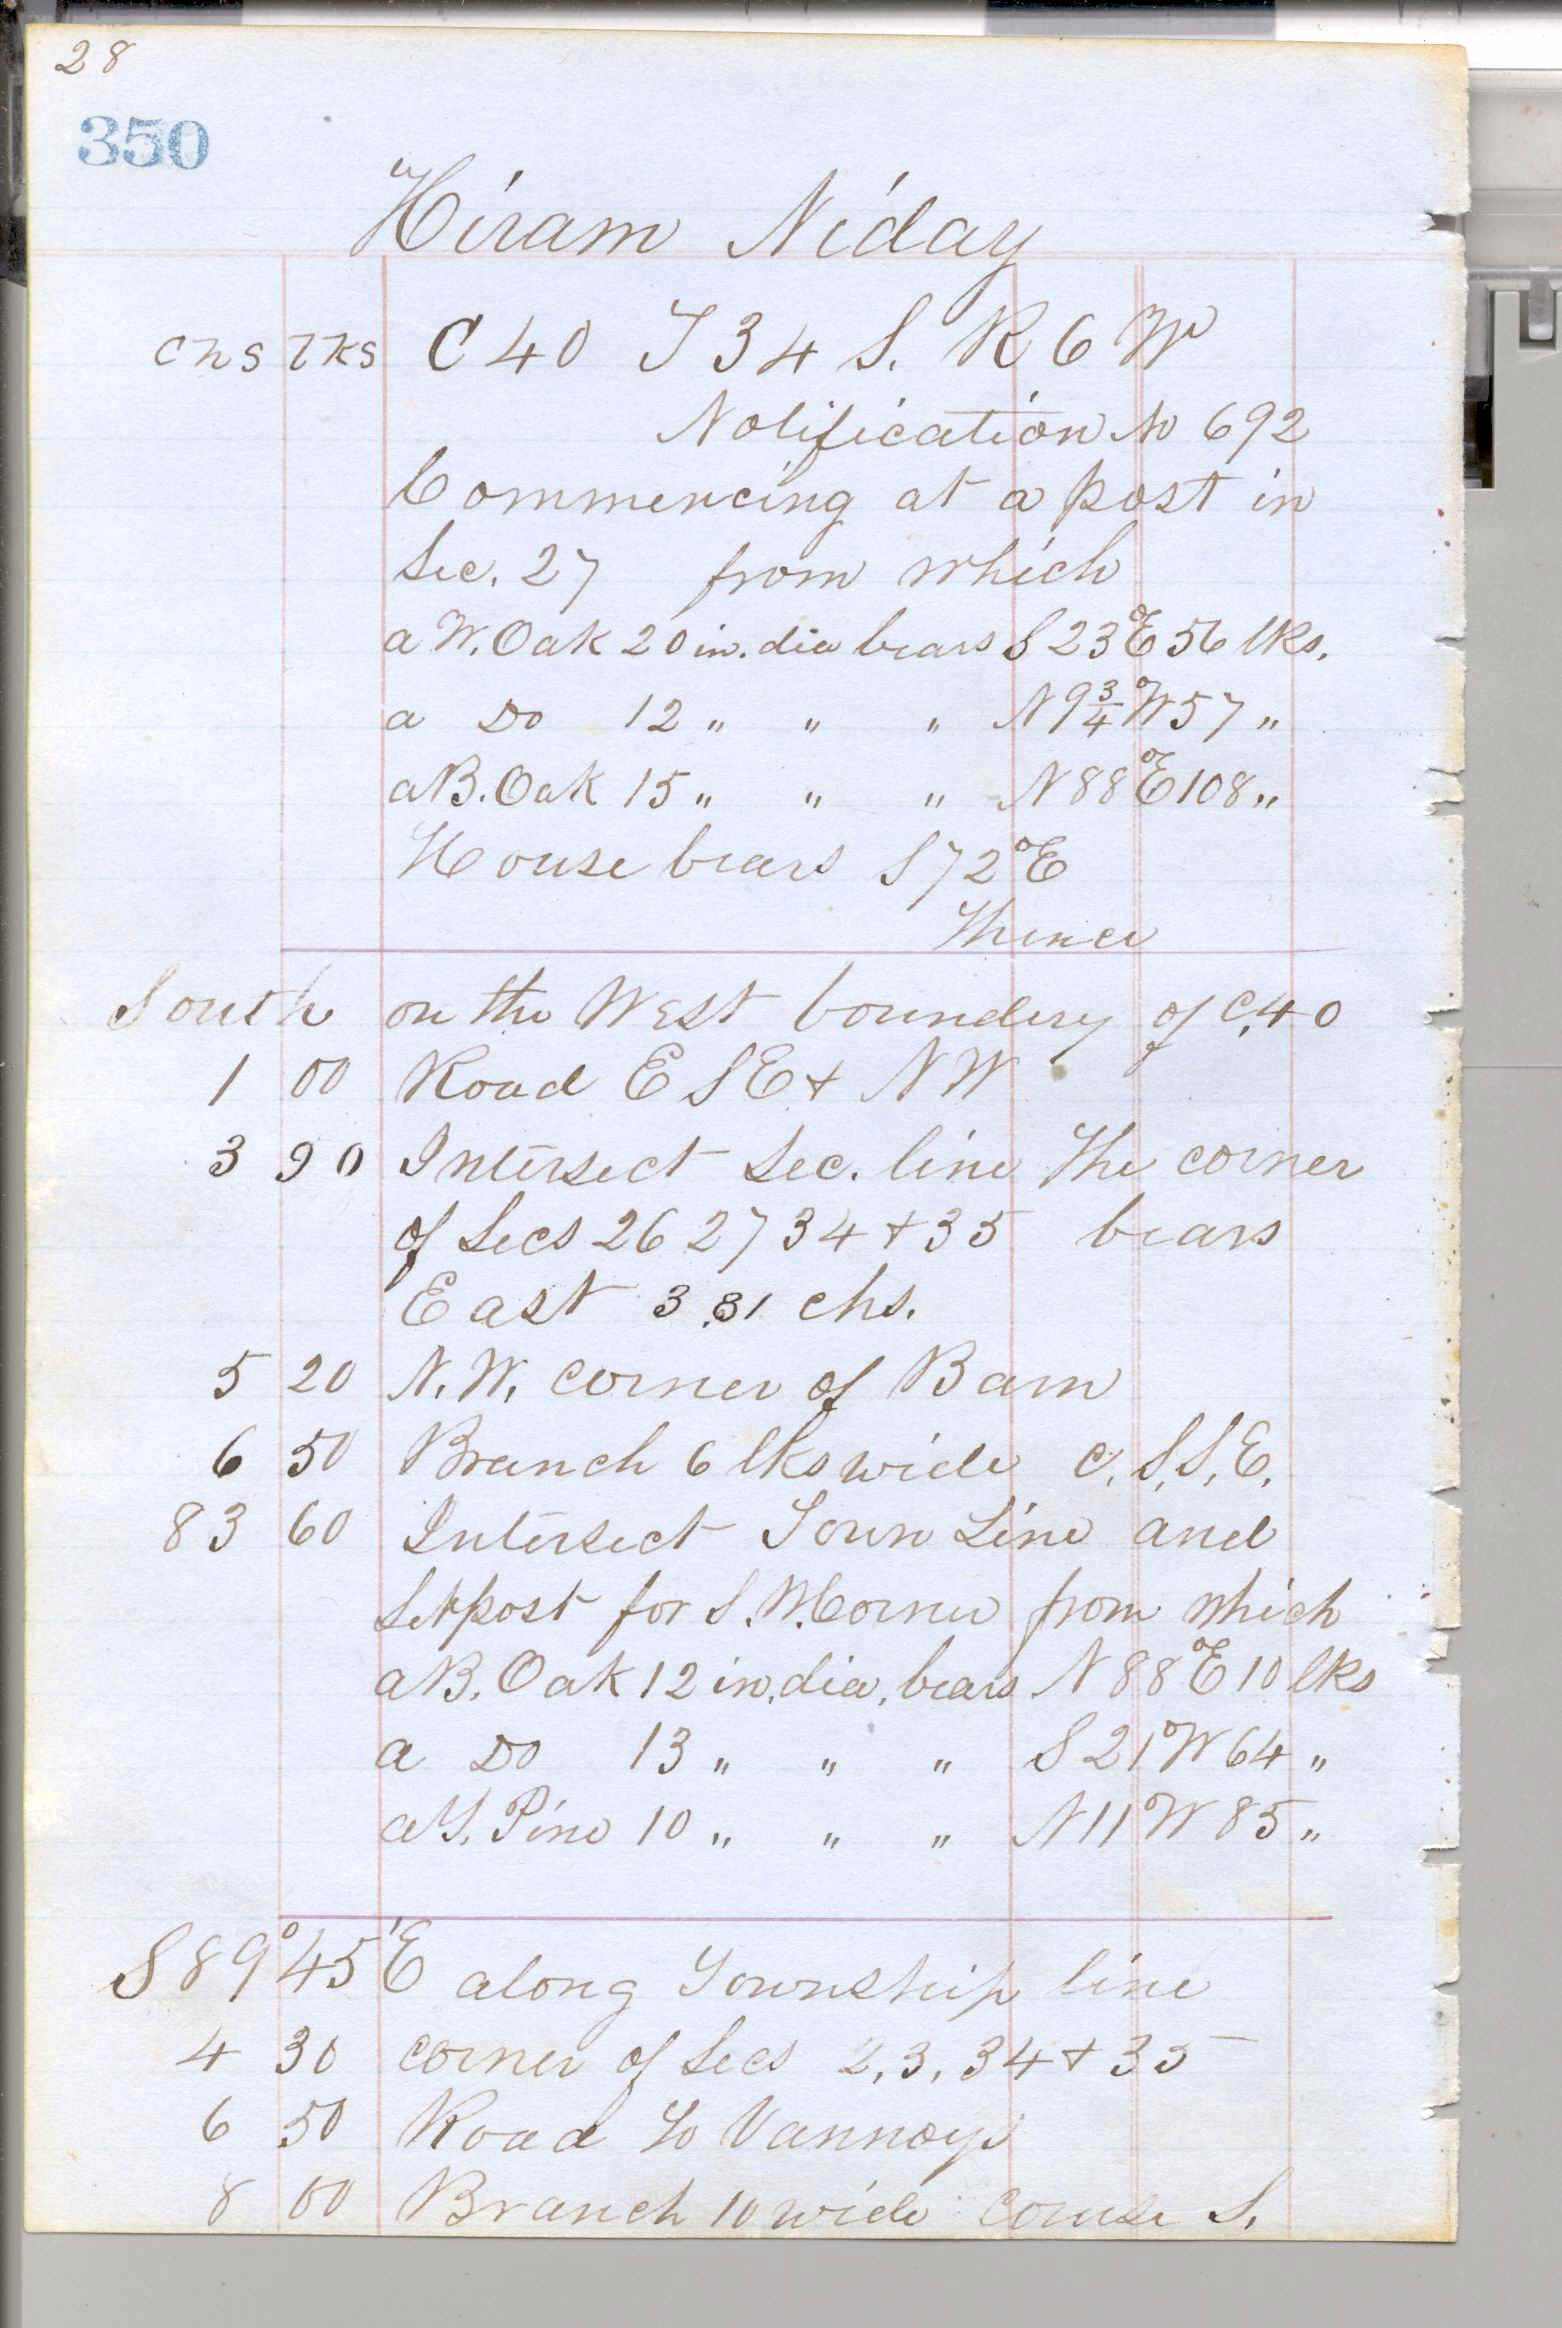 28
350
Hiram Niday
chs lks C 40 T 34 S. R 6 W
Notification No 692
Commencing at a post in
Sec. 27 from which
a W. Oak 20 in. dia bears S 23° E 56 lks.
a Do 12 " " " N 9 3/4° W 57 "
a B. Oak 15 " " " N 88° E 108 "
House bears S 72° E
Thence
South on the West boundery of C. 40
1 00 Road E S E & N W
3 90 Intersect Sec. line The corner
of Secs 26 27 34 & 35 bears
East 3.81 chs.
5 20 N. W. corner of Barn
6 50 Branch 6 lks wide c. S. S. E.
83 60 Intersect Town Line and
Set post for S. W. Corner from which
a B. Oak 12 in. dia. bears N 88° E 10 lks
a Do 13 " " " S 21° W 64 "
a Y. Pine 10 " " " N 11° W 85 "
S 89° 45' E along Township line
4 30 corner of Secs 2, 3, 34 & 35
6 50 Road to Vannoys
8 00 Branch 10 wide course S.